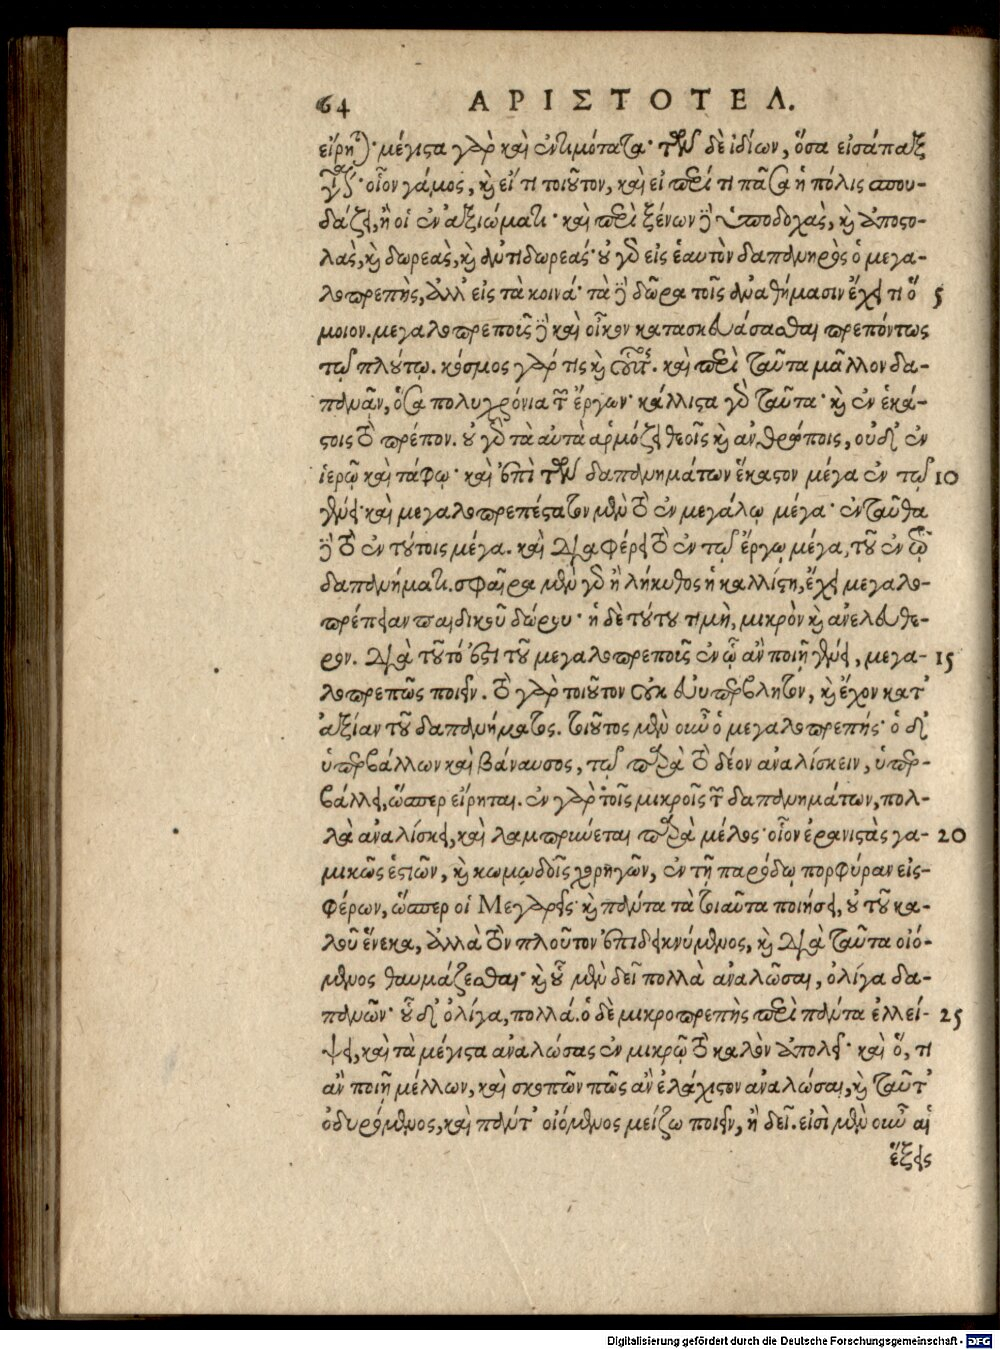 64 ΑΡΙΣΤΟΤΕΛ.
εἴρηται· μέγιστα γὰρ καὶ ἐντιμότατα· τῶν δὲ ἰδίων, ὅσα εἰσάπαξ
γίνεται· οἷον γάμος, καὶ εἴ τι τοιοῦτον, καὶ εἰ περί τι πᾶσα ἡ πόλις σπου-
δάζει, ἢ οἱ ἐν ἀξιώματι· καὶ περὶ ξένων δὲ ὑποδοχὰς, καὶ ἀποστο-
λὰς, καὶ δωρεὰς, καὶ ἀντιδωρεάς· οὐ γὰρ εἰς ἑαυτὸν δαπανηρὸς ὁ μεγα-
λοπρεπὴς, ἀλλ' εἰς τὰ κοινά· τὰ δὲ δῶρα τοῖς ἀναθήμασιν ἔχει τι ὅ 5
μοιον. μεγαλοπρεποῦς δὲ καὶ οἶκον κατασκευάσασθαι πρεπόντως
τῷ πλούτῳ. κόσμος γάρ τις καὶ οὗτος. καὶ περὶ ταῦτα μᾶλλον δα-
πανᾶν, ὅσα πολυχρόνια τῶν ἔργων· κάλλιστα γὰρ ταῦτα· καὶ ἐν ἑκά-
στοις τὸ πρέπον. οὐ γὰρ τὰ αὐτὰ ἁρμόζει θεοῖς καὶ ἀνθρώποις, οὐδ' ἐν
ἱερῷ καὶ τάφῳ· καὶ ἐπὶ τῶν δαπανημάτων ἕκαστον μέγα ἐν τῷ 10
γένει· καὶ μεγαλοπρεπέστατον μὲν τὸ ἐν μεγάλῳ μέγα· ἐνταῦθα
δὲ τὸ ἐν τούτοις μέγα. καὶ διαφέρει τὸ ἐν τῷ ἔργῳ μέγα, τοῦ ἐν τῷ
δαπανήματι. σφαῖρα μὲν γὰρ ἢ λήκυθος ἡ καλλίστη, ἔχει μεγαλο-
πρέπειαν παιδικοῦ δώρου· ἡ δὲ τούτου τιμὴ, μικρὸν καὶ ἀνελεύθε-
ρον. διὰ τοῦτό ἐστι τοῦ μεγαλοπρεποῦς ἐν ᾧ ἂν ποιῇ γένει, μεγα- 15
λοπρεπῶς ποιεῖν. τὸ γὰρ τοιοῦτον οὐκ εὐυπέρβλητον, καὶ ἔχον κατ'
ἀξίαν τοῦ δαπανήματος. τοιοῦτος μὲν οὖν ὁ μεγαλοπρεπής· ὁ δ'
ὑπερβάλλων καὶ βάναυσος, τῷ παρὰ τὸ δέον ἀναλίσκειν, ὑπερ-
βάλλει, ὥσπερ εἴρηται. ἐν γὰρ τοῖς μικροῖς τῶν δαπανημάτων, πολ-
λὰ ἀναλίσκει, καὶ λαμπρύνεται παρὰ μέλος· οἷον ἐρανιστὰς γα- 20
μικῶς ἑστιῶν, καὶ κωμῳδοῖς χορηγῶν, ἐν τῇ παρόδῳ πορφύραν εἰς-
φέρων, ὥσπερ οἱ Μεγαρεῖς· καὶ πάντα τὰ τοιαῦτα ποιήσει, οὐ τοῦ κα-
λοῦ ἕνεκα, ἀλλὰ τὸν πλοῦτον ἐπιδεικνύμενος, καὶ διὰ ταῦτα οἰό-
μενος θαυμάζεσθαι· καὶ οὗ μὲν δεῖ πολλὰ ἀναλῶσαι, ὀλίγα δα-
πανῶν· οὗ δ' ὀλίγα, πολλά. ὁ δὲ μικροπρεπὴς περὶ πάντα ἐλλεί- 25
ψει, καὶ τὰ μέγιστα ἀναλώσας ἐν μικρῷ τὸ καλὸν ἀπολεῖ· καὶ ὅ, τι
ἂν ποιῇ μέλλων, καὶ σκοπῶν πῶς ἂν ἐλάχιστον ἀναλώσαι, καὶ ταῦτ'
ὀδυρόμενος, καὶ πάντ' οἰόμενος μείζω ποιεῖν, ἢ δεῖ. εἰσὶ μὲν οὖν αἱ
ἕξεις
Digitalisierung gefördert durch die Deutsche Forschungsgemeinschaft - DFG